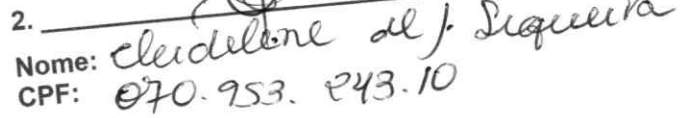 2.
Nome: Cleidilene de J. Siqueira
CPF: 070.953.243.10